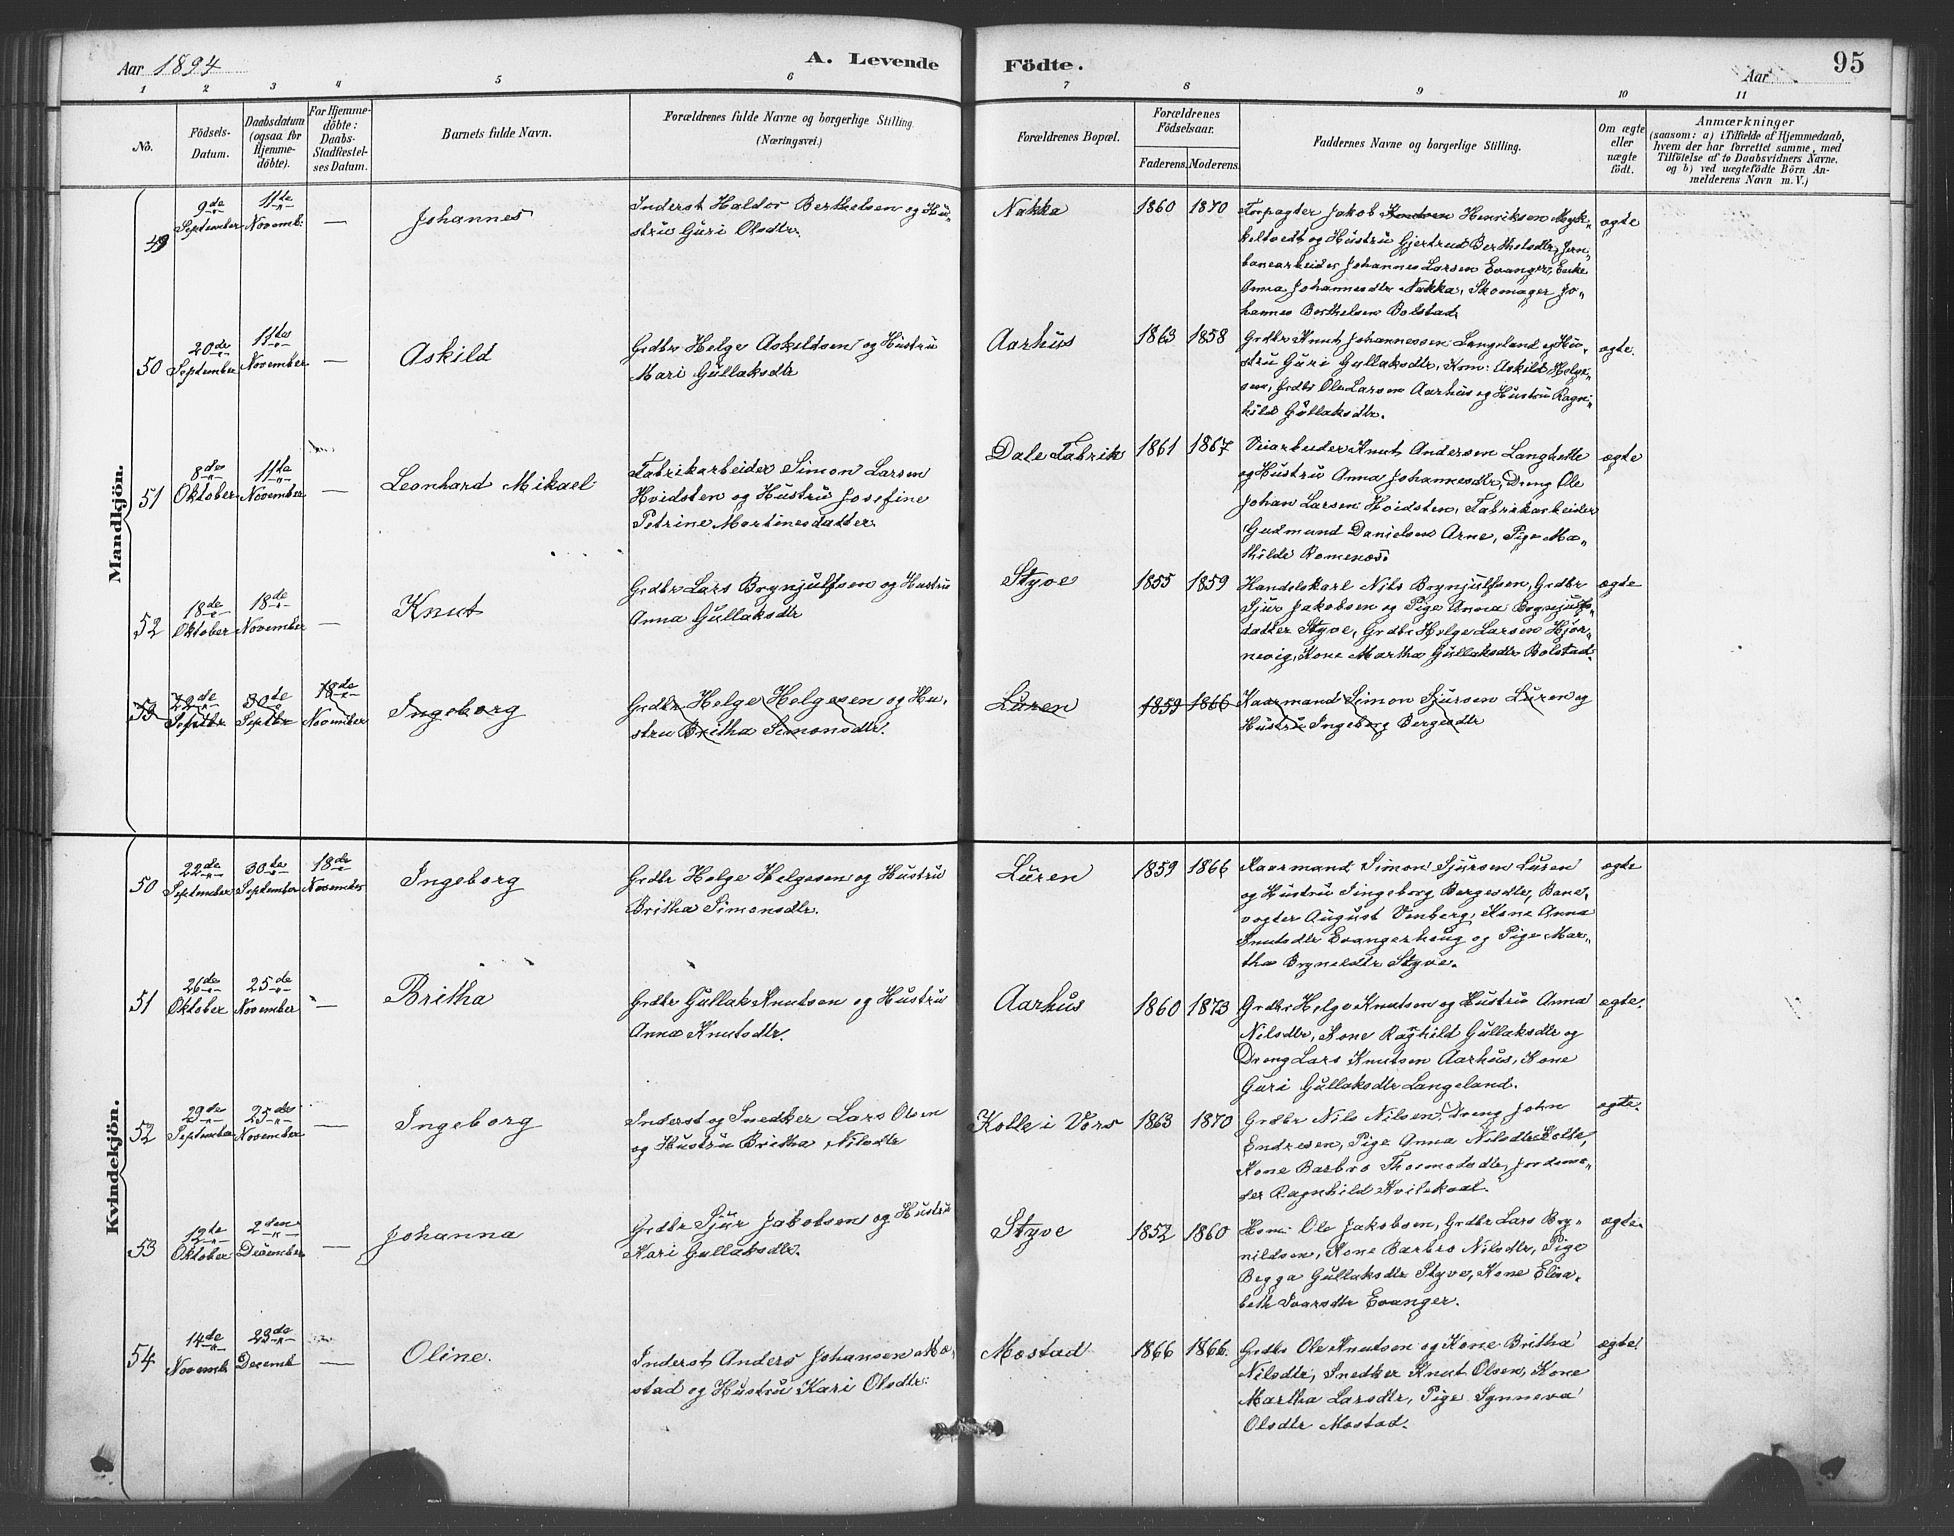 Aar 1894
A. Levende
Födte.
Aar
95
1 2 3 4 5 6 7 8 9 10 11
No.
Födsels-
Datum.
Daabsdatum
(ogsaa for
Hjemme-
döbte).
For Hjemme-
döbte:
Daabs-
Stadfæstel-
ses Datum.
Barnets fulde Navn.
Forældrenes fulde Navne og borgerlige Stilling.
(Næringsvei.)
Forældrenes Bopæl.
Forældrenes
Födselsaar.
Faderens. Moderens.
Faddernes Navne og borgerlige Stilling.
Om ægte
eller
uægte
födt.
Anmærkninger
(saasom: a) i Tilfælde af Hjemmedaab,
hvem der har forrettet samme, med
Tilföielse af to Daabsvidners Navne.
og b) ved uægtefödte Börn An-
melderens Navn m. V.)
Mandkjön.
49
9de
September
11te
Novemb.
—
Johannes
Inderst Haldor Berthelsen og Hu-
stru Guri Olsdtr.
Nakka
1860 1870
Forpagter Jakob Henriksen Myk-
keltvedt og Hustru Gjertrud Berthelsdtr, Jern-
banearbeider Johannes Larsen Evanger, Enke
Anna Johannesdtr Nakka, Skomager Jo-
hannes Berthelsen Bolstad.
ægte
50
20de
September
11te
November
—
Askild
Grdbr Helge Askildsen og Hustru
Mari Gullaksdtr
Aarhus
1863 1858
Grdbr Knut Johannessen Langeland og Hu-
stru Guri Gullaksdtr, Kom: Askild Helge-
sen, Grdbr Ole Larsen Aarhus og Hustru Ragn-
hild Gullaksdtr.
ægte.
51
8de
Oktober
11te
November
—
Leonhard Mikael
Fabrikarbeider Simon Larsen
Hvidsten og Hustru Josefine
Petrine Martinesdatter
Dale Fabrik
1861 1867
Veiarbeider Knut Andersen Langhelle
og Hustru Anna Johannesdtr, Dreng Ole
Johan Larsen Hvidsten, Fabrikarbeider
Gudmund Danielsen Arne, Pige Ma-
thilde Romenæs.
ægte
52
18de
Oktober
18de
November
—
Knut
Grdbr Lars Brynjulfsen og Hustru
Anna Gullaksdtr
Styve
1855 1859
Handelskarl Nils Brynjulfsen, Grdbr
Sjur Jakobsen og Pige Anna Brynjulfs-
datter Styve, Grdbr Helge Larsen Hjör-
nevig, Kone Martha Gullaksdtr Bolstad.
ægte
53
22de
Septbr
30te
Septbr
18de
November
Ingeborg
Grdbr Helge Helgesen og Hu-
stru Britha Simonsdtr.
Luren
1859 1866
Kaarmand Simon Sjursen Luren og
Hustru Ingeborg Bergesdtr
Kvindekjön.
50
22de
September
30te
September
18de
November
Ingeborg
Grdbr Helge Helgesen og Hustru
Britha Simonsdtr.
Luren
1859 1866
Kaarmand Simon Sjursen Luren
og Hustru Ingeborg Bergesdtr, Bane-
vogter August Venberg, Kone Anna
Knutsdtr Evangerhaug og Pige Mar-
tha Brynildtr Styve.
ægte
51
26de
Oktober
25de
November
—
Britha
Grdbr Gullak Knutsen og Hustru
Anna Knutsdtr.
Aarhus
1860 1873
Grdbr Helge Knutsen og Hustru Anna
Nilsdtr, Kone Raghild Gullaksdtr og
Dreng Lars Knutsen Aarhus, Kone
Guri Gullaksdtr Langeland.
ægte.
52
29de
September
25de
November
—
Ingeborg
Inderst og Snedker Lars Olsen
og Hustru Britha Nilsdtr
Kolle i Vors
1863 1870
Grdbr Nils Nilsen, Dreng John
Endresen, Pige Anna Nilsdtr Kolle,
Kone Barbro Thormodsdtr, Jordmo-
der Ragnhild Kvilekval.
ægte.
53
12te
Oktober
2den
December
—
Johanna
Grdbr Sjur Jakobsen og Hustru
Kari Gullaksdtr.
Styve
1852 1860
Kom: Ole Jakobsen, Grdbr Lars Bry-
nildsen, Kone Barbro Nilsdtr, Pige
Begga Gullaksdtr Styve, Kone Elisa-
beth Ivarsdtr Evanger.
ægte.
54
14de
Novemb
23de
Decemb
—
Oline.
Inderst Anders Johansen Mo-
stad og Hustru Kari Olsdtr.
Mostad
1866 1866.
Grdbr Ole Knutsen og Kone Britha
Nilsdtr, Snedker Knut Olsen, Kone
Martha Larsdtr, Pige Synneva
Olsdtr Mostad.
ægte.